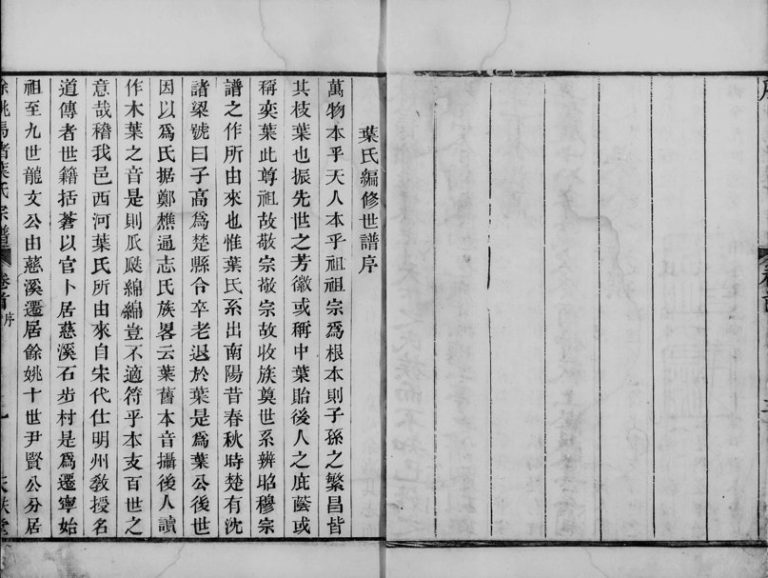 葉氏編修世譜序
萬物本乎天人本乎祖祖宗為根本則子孫之繁昌皆
其枝葉也振先世之芳徽或稱中葉貽後人之庇蔭或
稱奕葉此尊祖故敬宗敬宗故收族奠世系辨昭穆宗
譜之作所由來也惟葉氏系出南陽昔春秋時楚有沈
諸梁號曰子高為楚縣令卒老退於葉是為葉公後世
因以為氏据鄭樵通志氏族畧云葉舊本音攝後人讀
作木葉之音是則瓜瓞綿綿豈不適符乎本支百世之
意哉稽我邑西河葉氏所由來自宋代仕明州教授名
道傳者世籍括蒼以官卜居慈溪石步村是為遷寧始
祖至九世龍文公由慈溪遷居餘姚十世尹賢公分居
餘姚馬渚葉氏宗譜
卷首
序